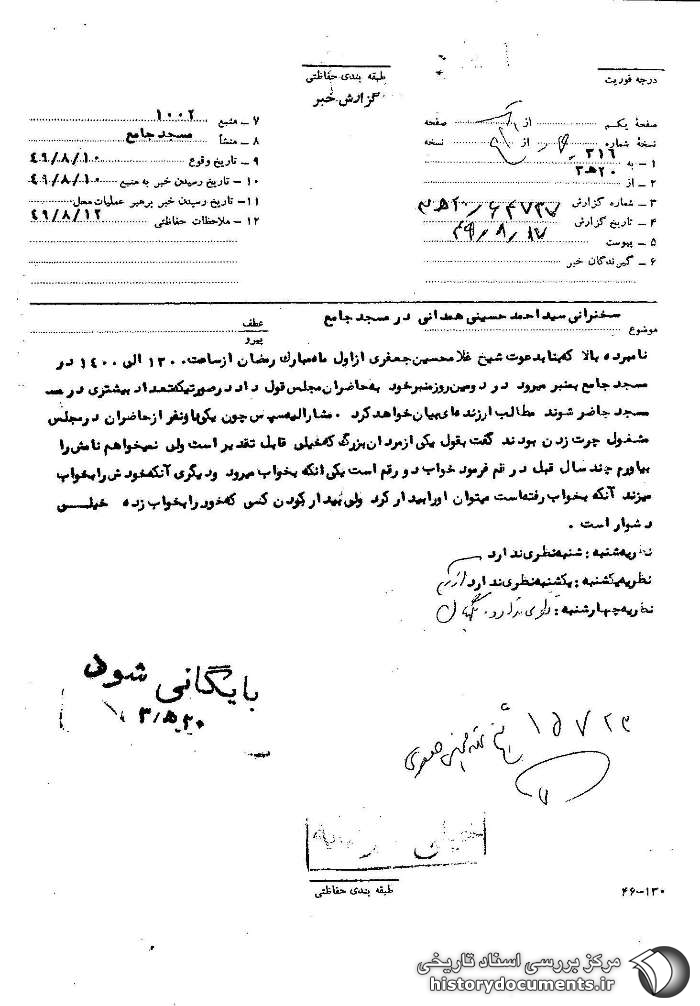 درجه فوریت
طبقه بندی حفاظتی
گزارش خبر
صفحهٔ یکم از صفحه
نسخهٔ شماره از نسخه
۱ – به ۳۱۶
۲ – از ۲۰ﻫ۳
۳ – شماره گزارش ۲۰ﻫ۳/۶۴۷۳۷
۴ – تاریخ گزارش ۴۹/۸/۱۷
۵ – پیوست
۶ – گیرندگان خبر
۷ – منبع ۱۰۰۲
۸ – منشأ مسجد جامع
۹ – تاریخ وقوع ۴۹/۸/۱۰
۱۰ – تاریخ رسیدن خبر به منبع ۴۹/۸/۱۰
۱۱ – تاریخ رسیدن خبر برهبر عملیات محل ۴۹/۸/۱۲
۱۲ – ملاحظات حفاظتی
موضوع سخنرانی سید احمد حسینی همدانی در مسجد جامع
عطف
پیرو
نامبرده بالا که بنا بدعوت شیخ غلامحسین جعفری از اول ماه مبارک رمضان از ساعت ۱۳۰۰ الی ۱۴۰۰ در
مسجد جامع بمنبر میرود در دومین روز منبر خود به حاضران مجلس قول داد در صورتیکه تعداد بیشتری در مسـ
مسجد حاضر شوند مطالب ارزنده‌ای بیان خواهد کرد . مشارالیه سپس چون یکی یا دو نفر از حاضران در مجلس
مشغول چرت زدن بودند گفت بقول یکی از مردان بزرگ که خیلی قابل تقدیر است ولی نمیخواهم نامش را
بیاورم چند سال قبل در قم فرمود خواب دو رقم است یکی آنکه بخواب میرود و دیگری آنکه خودش را بخواب
میزند آنکه بخواب رفته است میتوان او را بیدار کرد ولی بیدار کردن کسی که خود را بخواب زده خیلی
دشوار است .
نظریه شنبه : شنبه نظری ندارد
نظریه یکشنبه : یکشنبه نظری ندارد
نظریه چهارشنبه : نظری ندارد .
بایگانی شود
۲۰ﻫ۳
۱۵۷۲۳
طبقه بندی حفاظتی
۴۶-۱۳۰
مرکز بررسی اسناد تاریخی
historydocuments.ir